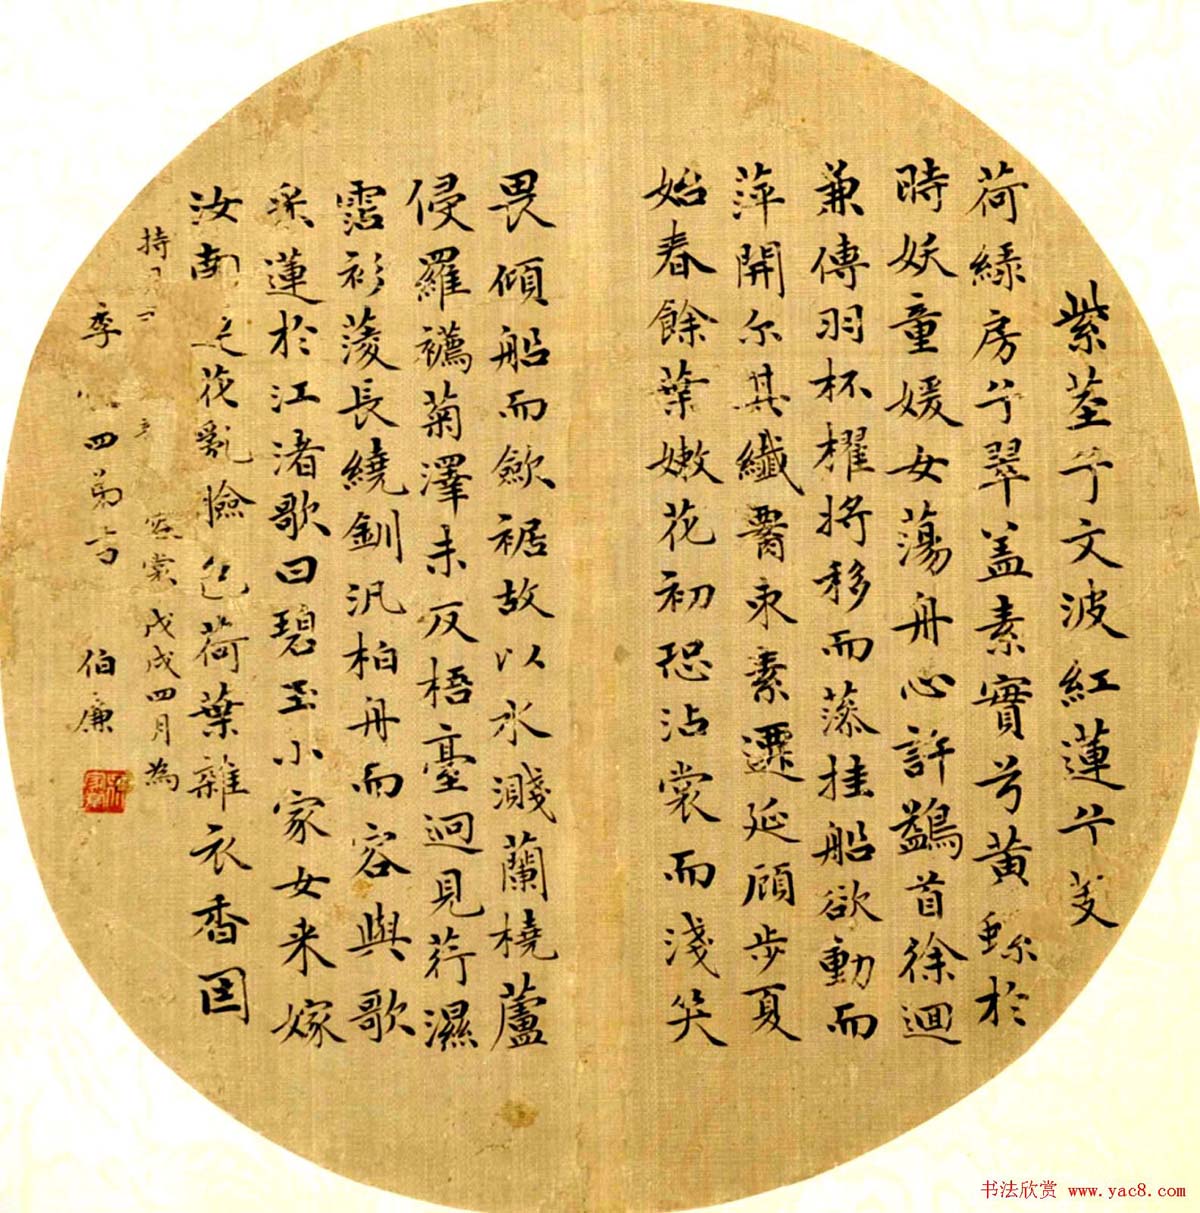 紫莖兮文波紅蓮兮芰
荷綠房兮翠盖素實兮黃螺於
時妖童媛女蕩舟心許鷁首徐迴
兼傳羽杯櫂將移而藻挂船欲動而
萍開尔其纖腰束素遷延顧步夏
始春餘葉嫩花初恐沾裳而淺笑
畏傾船而歛裾故以水濺蘭橈蘆
侵羅襪菊澤未反梧臺迥見荇濕
霑衫菱長繞釧汎柏舟而容與歌
采蓮於江渚歌曰碧玉小家女来嫁
汝南王花亂臉色荷葉雜衣香因
持裳戊戌四月為
季四弟 伯廉
书法欣赏 www.yac8.com